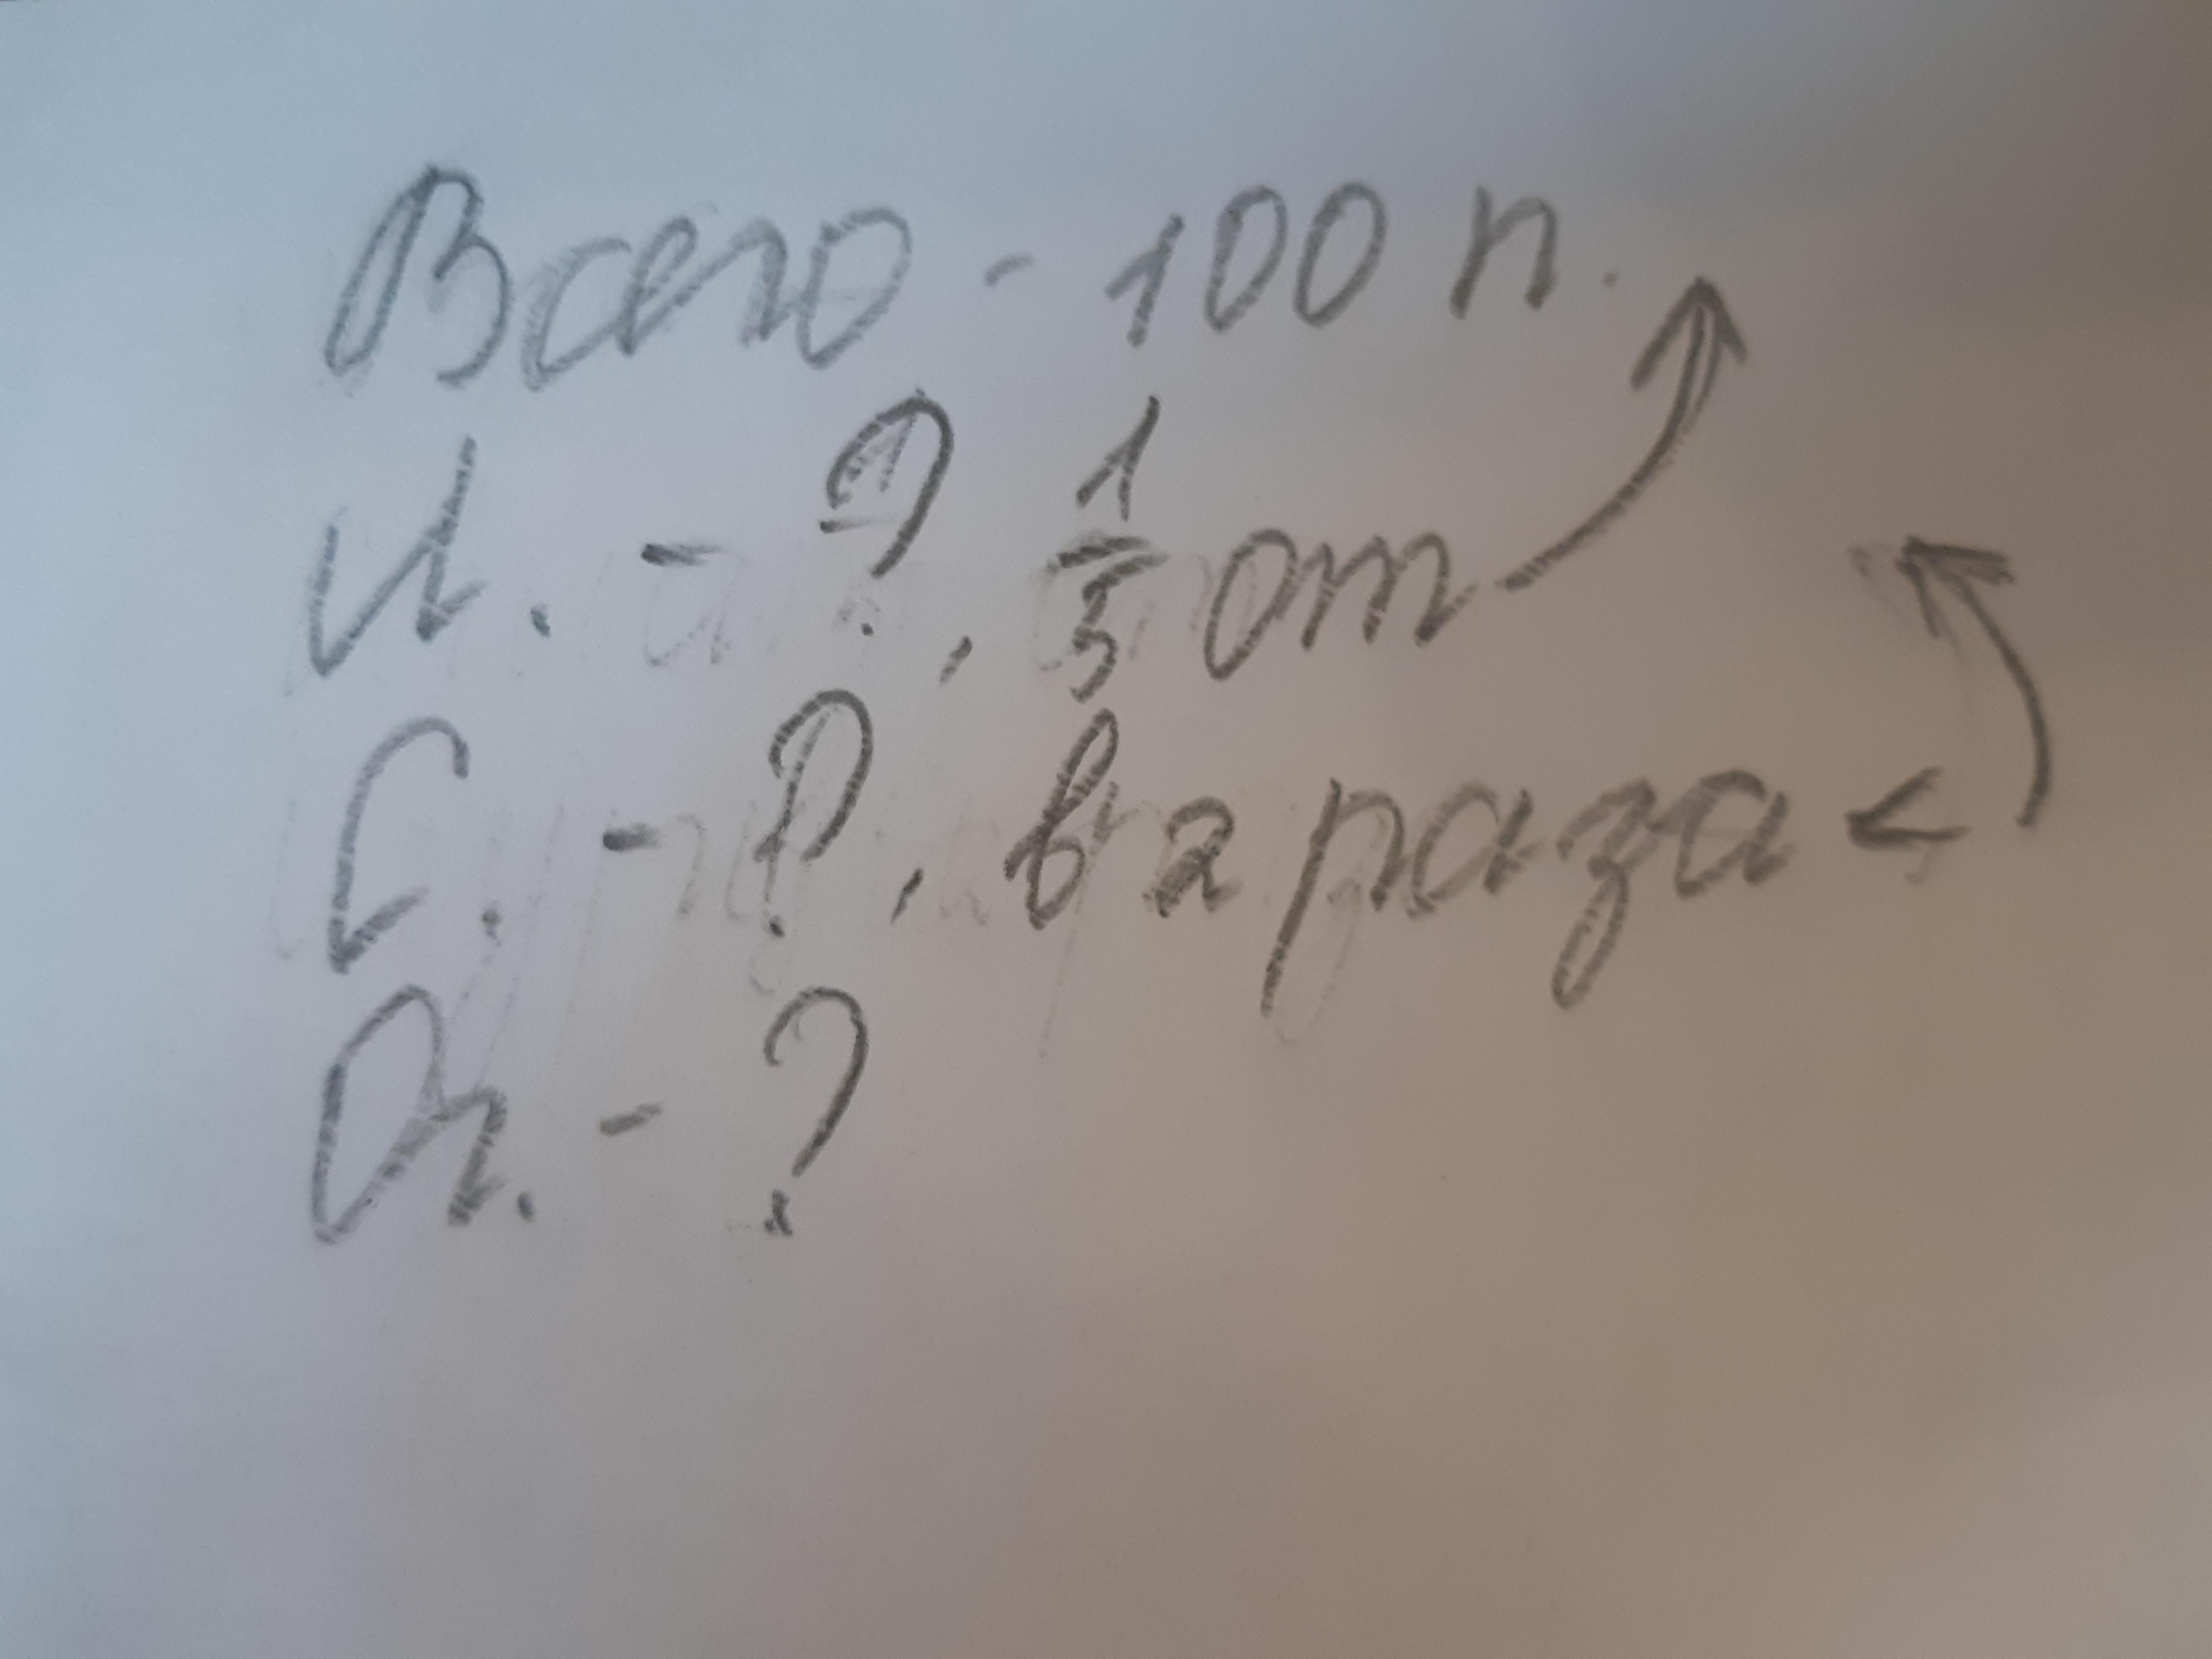 Всего - 100 п.
И. - ?, 1/5 от
С. - ?, в 2 раза <
Ог. - ?